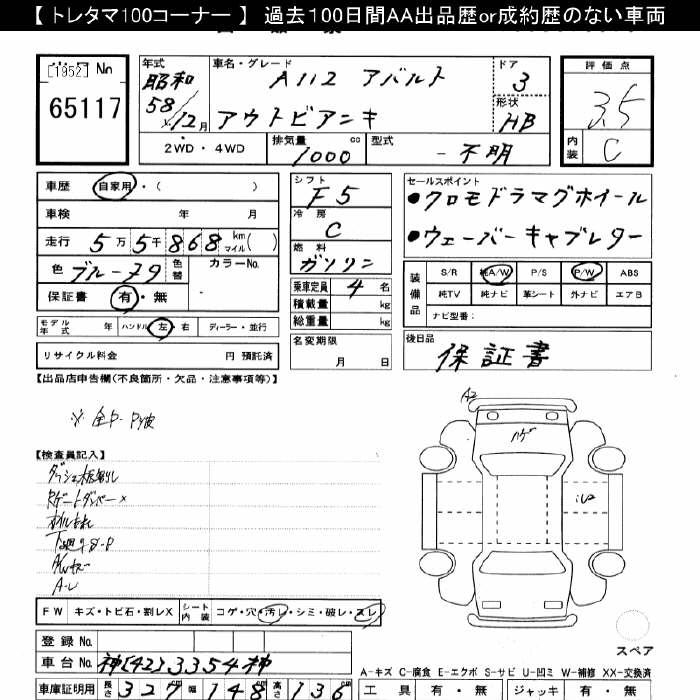 【 トレタマ100コーナー 】 過去100日間AA出品歴or成約歴のない車両
[1952] No 65117
年式 昭和 58/12月
車名・グレード A112 アバルト
アウトビアンキ
ドア 3
形状 HB
評価点 3.5
内装 C
2WD・4WD
排気量 1000 cc
型式 - 不明
車歴 自家用・( )
車検 年 月
走行 5万5千868 km マイル( )
色 ブルー79 色替 カラーNo.
保証書 有・無
モデル年式 年 ハンドル 左・右 ディーラー・並行
リサイクル料金 円 預託済
シフト F5
冷房 C
燃料 ガソリン
乗車定員 4 名
積載量 kg
総重量 kg
名変期限 月 日
セールスポイント
●クロモドラマグホイール
●ウェーバーキャブレター
装備品 S/R 純A/W P/S P/W ABS
純TV 純ナビ 革シート 外ナビ エアB
ナビ型番:
後日品 保証書
【出品店申告欄(不良箇所・欠品・注意事項等)】
【検査員記入】
A2
ハゲ
FW キズ・トビ石・割レX シート内装 コゲ・穴・汚レ・シミ・破レ・スレ
登録 No.
車台 No. 神[42]3354神
車庫証明用 長さ 327 幅 148 高さ 136
スペア
A-キズ C-腐食 E-エクボ S-サビ U-凹ミ W-補修 XX-交換済
工具 有・無 ジャッキ 有・無